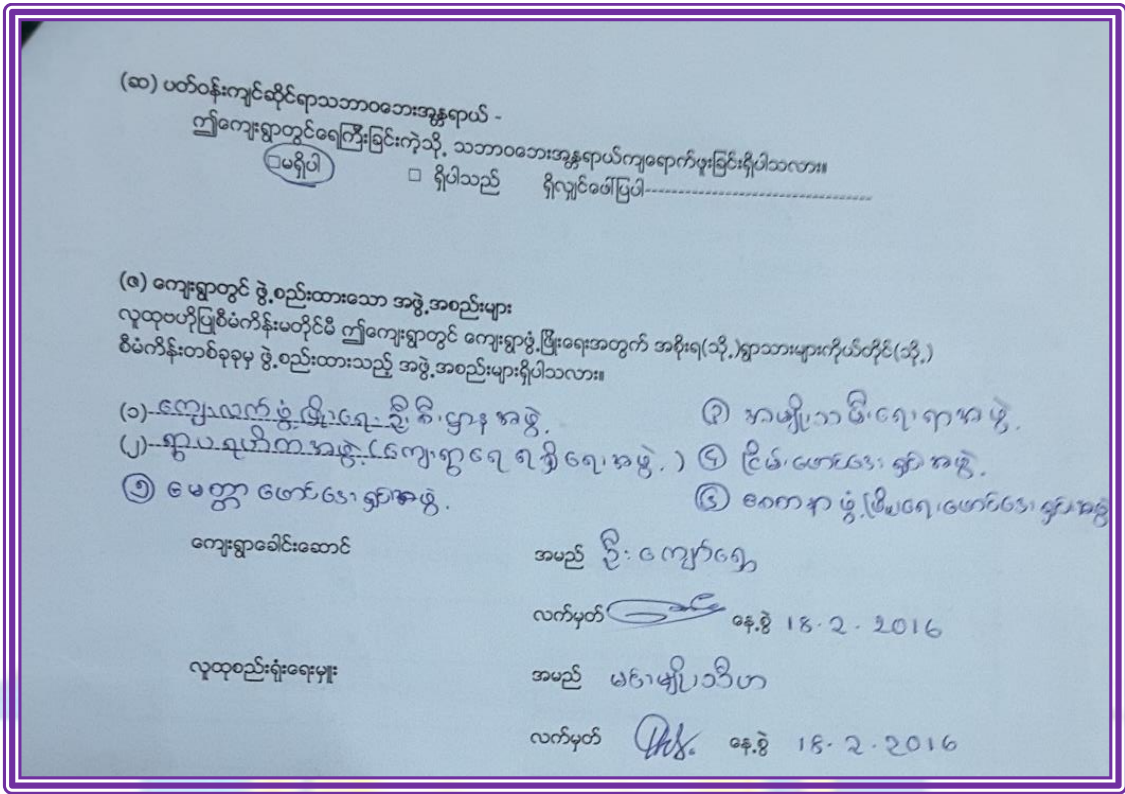 (ဆ) ပတ်ဝန်းကျင်ဆိုင်ရာသဘာဝဘေးအန္တရာယ် -
ဤကျေးရွာတွင်ရေကြီးခြင်းကဲ့သို့ သဘာဝဘေးအန္တရာယ်ကျရောက်ဖူးခြင်းရှိပါသလား။
□မရှိပါ □ ရှိပါသည် ရှိလျှင်ဖေါ်ပြပါ------------------------------------
(ဇ) ကျေးရွာတွင် ဖွဲ့စည်းထားသော အဖွဲ့အစည်းများ
လူထုဗဟိုပြုစီမံကိန်းမတိုင်မီ ဤကျေးရွာတွင် ကျေးရွာဖွံ့ဖြိုးရေးအတွက် အစိုးရ(သို့)ရွာသားများကိုယ်တိုင်(သို့)
စီမံကိန်းတစ်ခုခုမှ ဖွဲ့စည်းထားသည့် အဖွဲ့အစည်းများရှိပါသလား။
(၁) ကျေးလက်ဖွံ့ဖြိုးရေးဦးစီးဌာနအဖွဲ့ ③ အမျိုးသမီးရေးရာအဖွဲ့
(၂) ရွာပရဟိတအဖွဲ့ (ကျေးရွာရေရရှိရေးအဖွဲ့) ④ ငြိမ်းဖောင်ဒေးရှင်းအဖွဲ့
⑤ မေတ္တာဖောင်ဒေးရှင်းအဖွဲ့ ⑥ ဖွံ့ဖြိုးရေးဖောင်ဒေးရှင်းအဖွဲ့
ကျေးရွာခေါင်းဆောင် အမည် ဦးကျော်ရွှေ
လက်မှတ် နေ့စွဲ 18.2.2016
လူထုစည်းရုံးရေးမှူး အမည် မင်းမျိုးသီဟ
လက်မှတ် နေ့စွဲ 18.2.2016